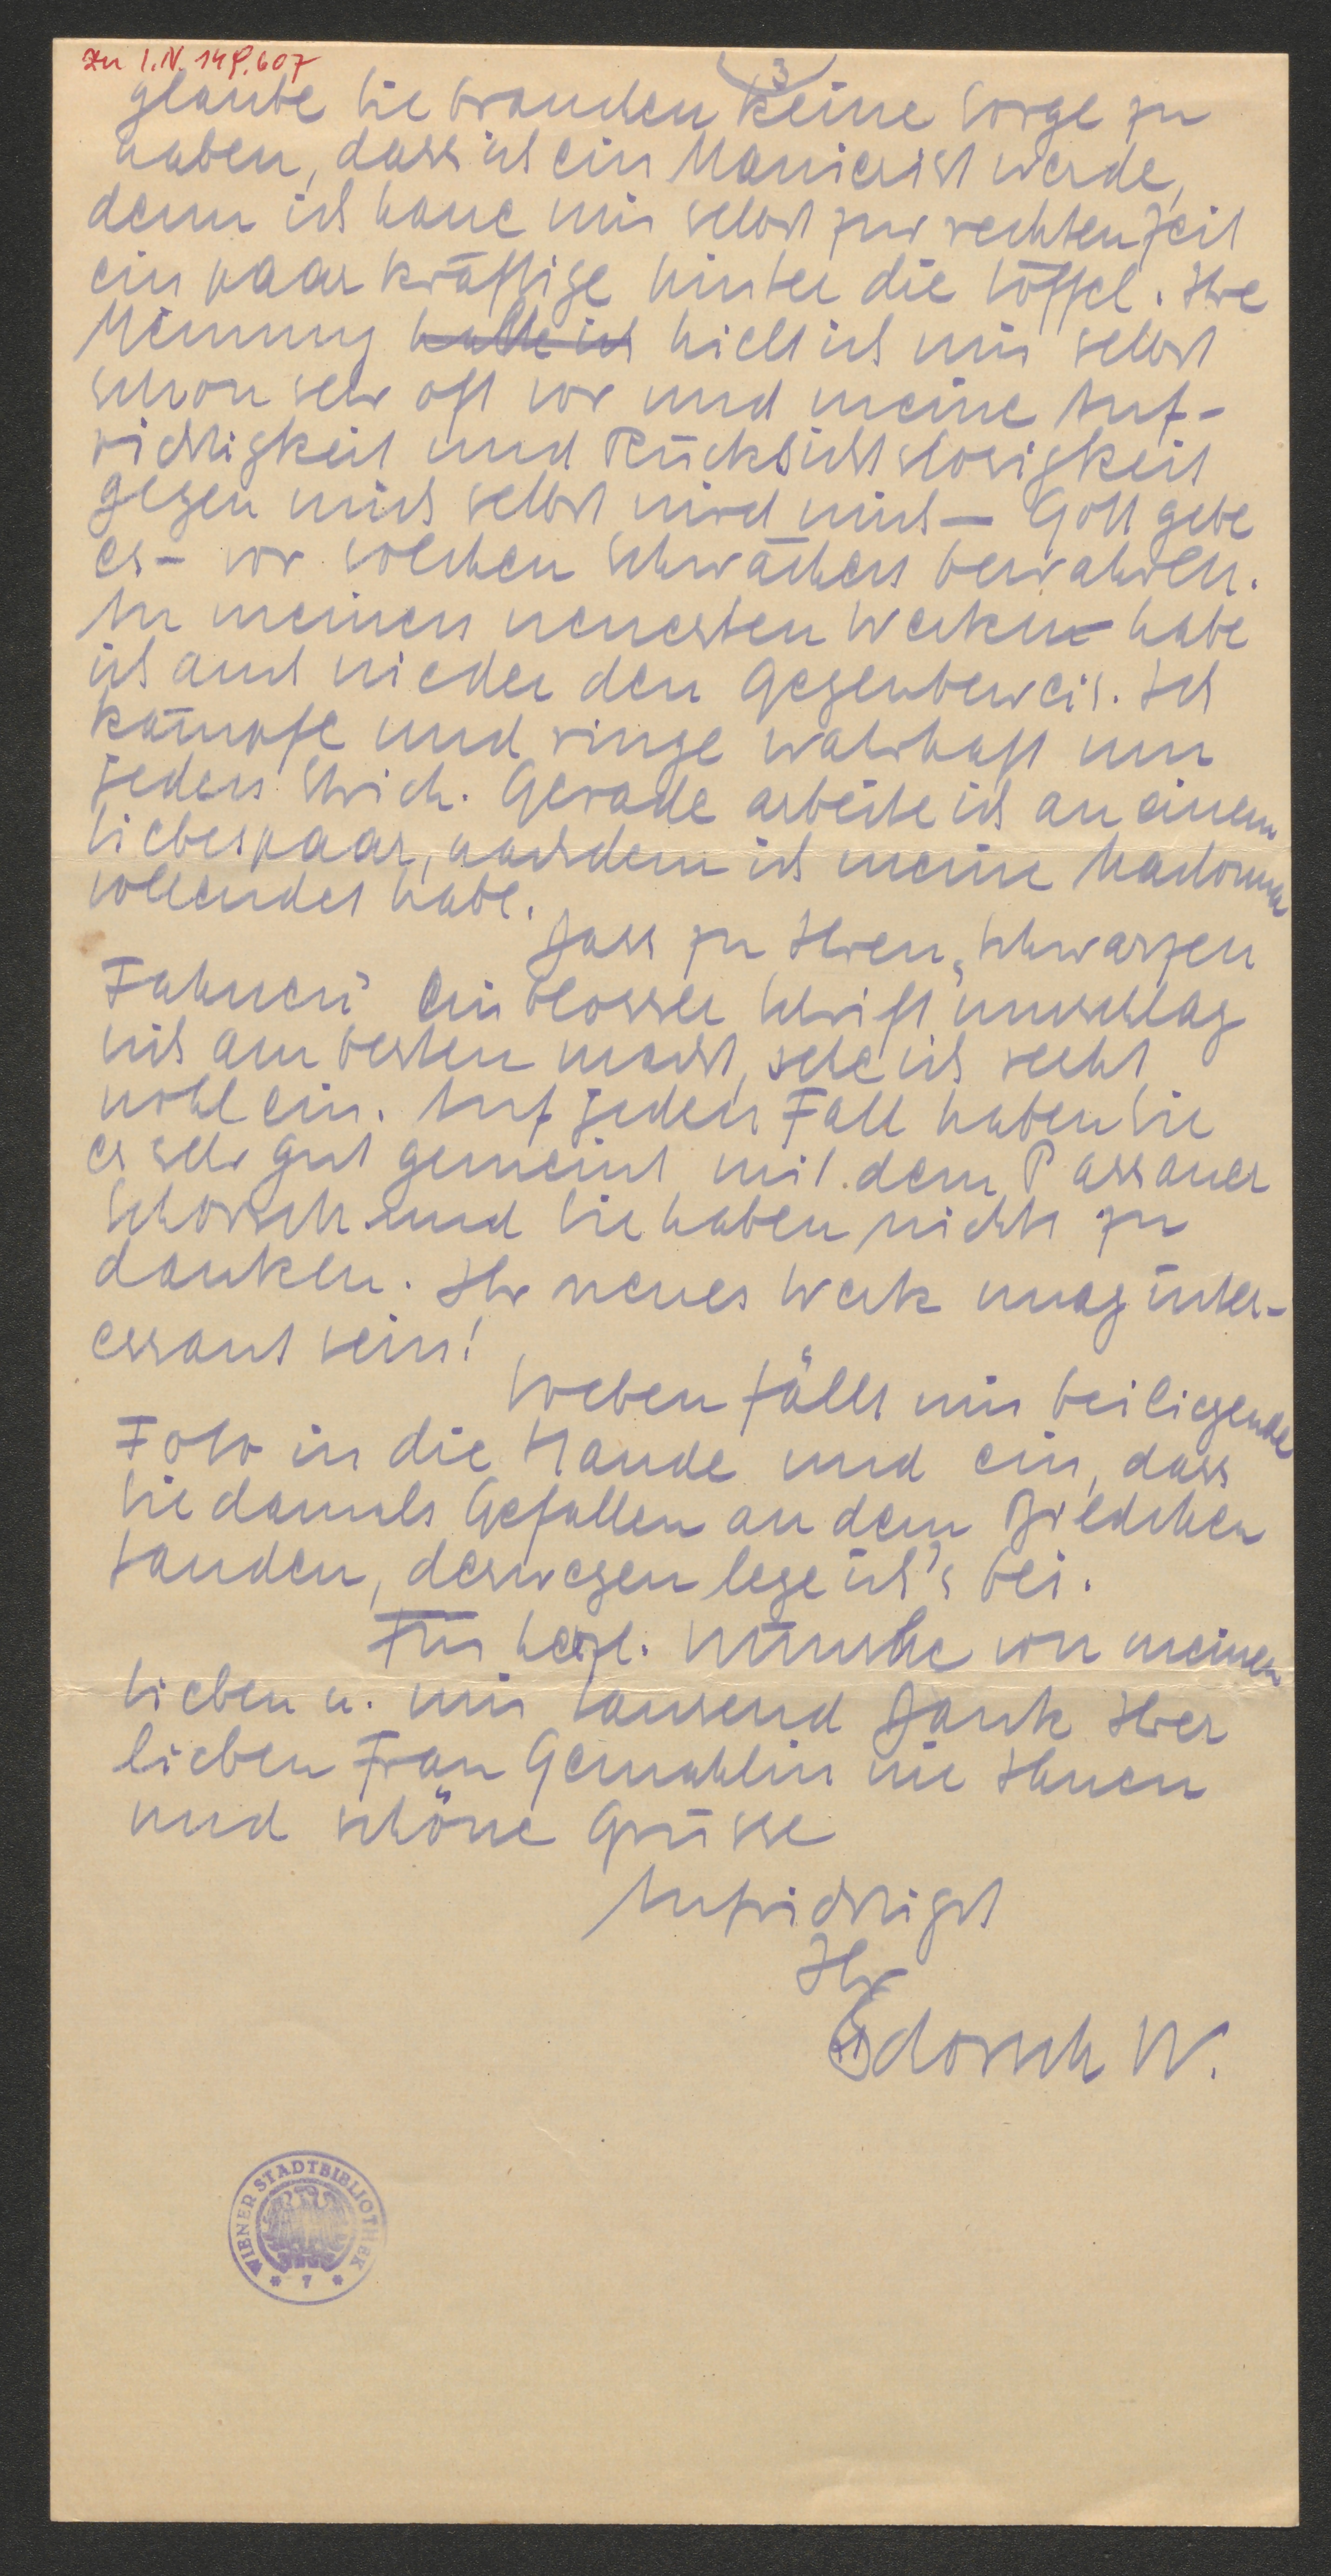 zu I.N. 149.607
3
glaube Sie brauchen keine Sorge zu
haben, dass ich ein Manierist werde,
denn ich haue mir selbst zur rechten Zeit
ein paar kräftige hinter die Löffel. Ihre
Meinung hatte ich hielt ich mir selbst
schon sehr oft vor und meine Auf-
richtigkeit und Rücksichtslosigkeit
gegen mich selbst wird mich – Gott gebe
es – vor solchen Schwächen bewahren.
An meinen neuesten Werken habe
ich auch wieder den Gegenbeweis. Ich
kämpfe und ringe wahrhaft um
jeden Strich. Gerade arbeite ich an einem
Liebespaar, nachdem ich meine Madonna
vollendet habe.
Dass zu Ihren „Schwarzen
Fahnen" ein blosser Schriftumschlag
sich am besten macht, sehe ich recht
wohl ein. Auf jeden Fall haben Sie
es sehr gut gemeint mit dem Passauer
Schorsch und Sie haben nichts zu
danken. Ihr neues Werk mag inter-
essant sein!
Soeben fällt mir beiliegende
Foto in die Hände und ein, dass
Sie damals Gefallen an dem Bildchen
fanden, deswegen lege ich's bei.
Für herzl. Wünsche von meinen
Lieben u. mir tausend Dank Ihrer
lieben Frau Gemahlin wie Ihnen
und schöne Grüsse
Aufrichtigst
Ihr
Schorsch W.
WIENER STADTBIBLIOTHEK
* 7 *